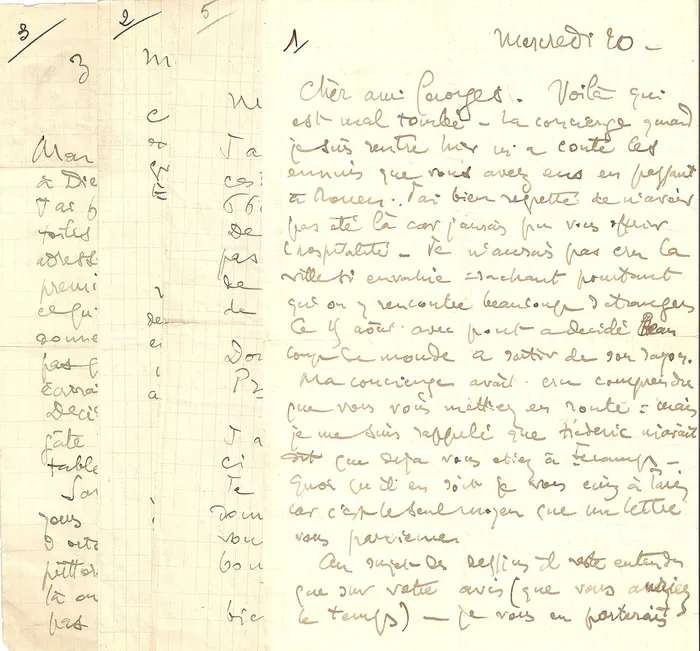 3
2
5
1
Mercredi 20 -
Cher ami Georges. Voilà qui
est mal tombé - La concierge quand
je suis rentré hier m'a conté les
ennuis que vous avez eus en passant
à Rouen. J'ai bien regretté de n'avoir
pas été là car j'aurais pu vous offrir
l'hospitalité - Je n'aurais pas cru la
ville si envahie - sachant pourtant
qu'on y rencontre beaucoup d'étrangers
Ce 15 août avec pont a décidé Beau
coup de monde à sortir de son
Ma concierge avait cru comprendre
que vous vous mettiez en route = mais
je me suis rappelé que Frédéric m'avait
dit que déjà vous étiez à Fécamp -
Quoi qu'il en soit je vous écris à Paris
car c'est le seul moyen que ma lettre
vous parvienne.
Au sujet des dessins il reste entendu
que sur votre avis (que vous auriez
le temps) - je vous en porterais
3
Mar
à Die
J'ai
toiles
adress
premi
ce qu
donne
pas
écrira
Deci
gâte
table
Sar
jours
d'octo
pittor
là ou
pas
m
J'a
ces
De
pas
de
de
Dou
Pr
J'a
ci
Je
dom
vou
bou
bie